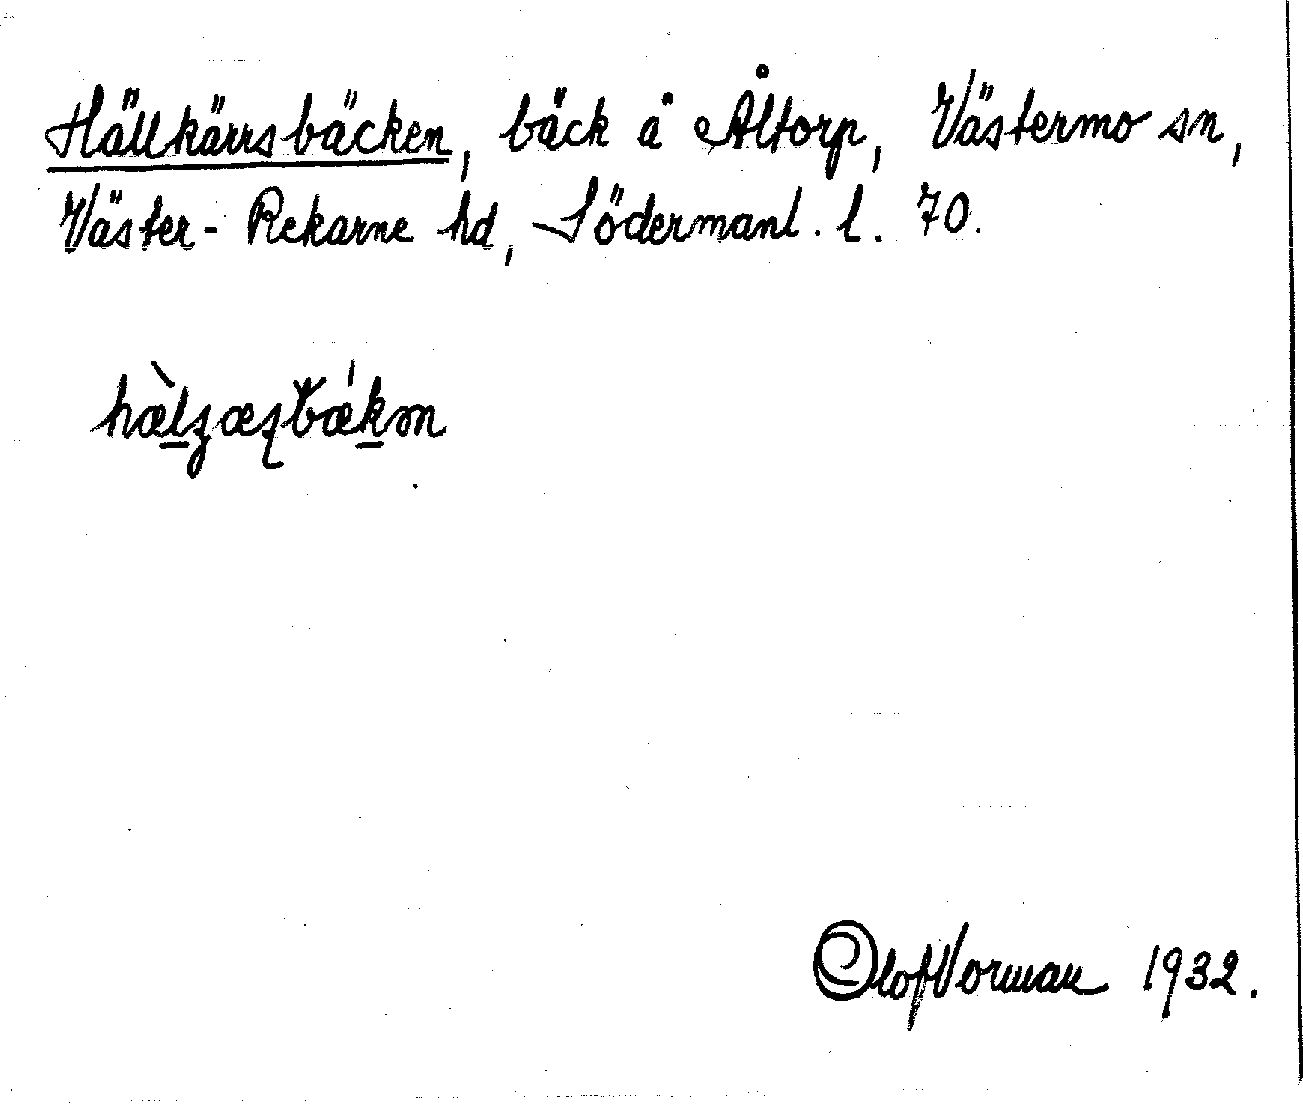 Hällkärrsbäcken, bäck å Åltorp, Västermo sn,
Väster-Rekarne hd, Södermanl. l. 70.
Olof Norman 1932.